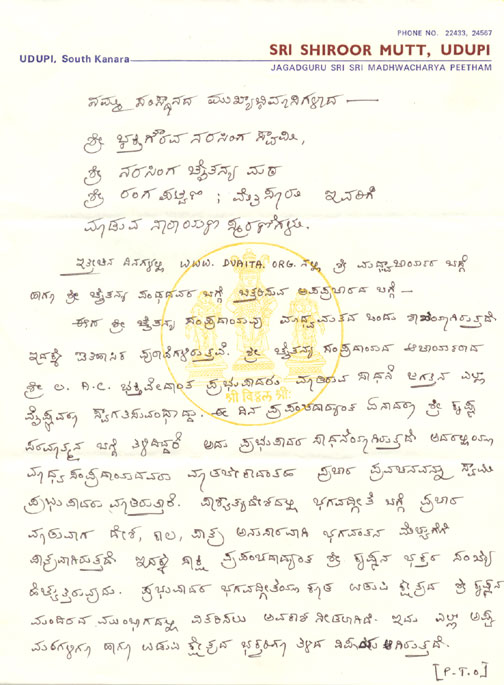 PHONE NO. 22433, 24567
SRI SHIROOR MUTT, UDUPI
UDUPI, South Kanara
JAGADGURU SRI SRI MADHWACHARYA PEETHAM
ನಮ್ಮ ಸಂಸ್ಥಾನದ ಮುಖ್ಯಾಭಿಮಾನಿಗಳಾದ —
ಶ್ರೀ ಭಕ್ತಿಗೌರವ ನರಸಿಂಗ ಸ್ವಾಮಿ,
ಶ್ರೀ ನರಸಿಂಗ ಚೈತನ್ಯ ಮಠ
ಶ್ರೀ ರಂಗ ಪಟ್ಟಣ ; ಇವರಿಗೆ
ಮಾಡುವ ನಾರಾಯಣ ಸ್ಮರಣೆಗಳು.
ಇತ್ತೀಚಿನ ದಿನಗಳಲ್ಲಿ WWW. DVAITA. ORG. ನಲ್ಲಿ ಶ್ರೀ ಮಧ್ವಾಚಾರ್ಯರ ಬಗ್ಗೆ
ಹಾಗೂ ಶ್ರೀ ಚೈತನ್ಯ ಪಂಥದವರ ಬಗ್ಗೆ ಬಿತ್ತರಿಸುವ ಅಪಪ್ರಚಾರದ ಬಗ್ಗೆ —
ಈಗ ಶ್ರೀ ಚೈತನ್ಯ ಸಂಪ್ರದಾಯವು ಮಾಧ್ವಮತದ ಒಂದು ಶಾಖೆಯಾಗಿರುತ್ತದೆ.
ಇದಕ್ಕೆ ಐತಿಹಾಸಿಕ ಪುರಾವೆಗಳಿರುತ್ತವೆ. ಶ್ರೀ ಚೈತನ್ಯ ಸಂಪ್ರದಾಯದ ಆಚಾರ್ಯರಾದ
ಶ್ರೀ ಲ. ಎ.ಸಿ. ಭಕ್ತಿವೇದಾಂತ ಪ್ರಭುಪಾದರು ಮಾಡಿರುವ ಸಾಧನೆ ಜಗತ್ತಿನ ಎಲ್ಲಾ
ವೈಷ್ಣವರೂ ಸ್ವಾಗತಿಸುವಂಥಾದ್ದು. ಈ ದಿನ ಪ್ರಪಂಚದಾದ್ಯಂತ ಏನಾದರೂ ಶ್ರೀ ಕೃಷ್ಣ
ಪರಮಾತ್ಮನ ಬಗ್ಗೆ ತಿಳಿದಿದ್ದರೆ ಅದು ಪ್ರಭುಪಾದರ ಸಾಧನೆಯಾಗಿರುತ್ತದೆ ಅದರಲ್ಲಿಯೂ
ಮಾಧ್ವ ಸಂಪ್ರದಾಯದವರು ಮಾಡಬೇಕಾದಂತಹ ಪ್ರಚಾರ ಪ್ರವಚನವನ್ನು ಸ್ವಾಮಿ
ಪ್ರಭುಪಾದರು ಮಾಡಿರುತ್ತಾರೆ. ಪಾಶ್ಚಾತ್ಯದೇಶದಲ್ಲಿ ಭಗವದ್ಗೀತೆ ಬಗ್ಗೆ ಪ್ರಚಾರ
ಮಾಡುವಾಗ ದೇಶ, ಕಾಲ, ಪಾತ್ರ ಅನುಸಾರವಾಗಿ ಭಗವಂತನ ಮೆಚ್ಚುಗೆಗೆ
ಪಾತ್ರವಾಗಿರುತ್ತದೆ ಇದಕ್ಕೆ ಸಾಕ್ಷಿ ಪ್ರಪಂಚದಾದ್ಯಂತ ಶ್ರೀ ಕೃಷ್ಣನ ಭಕ್ತರ ಸಂಖ್ಯೆ
ಹೆಚ್ಚುತ್ತಿರುವುದು. ಪ್ರಭುಪಾದರ ಭಗವದ್ಗೀತೆಯೂ ಕೂಡ ಉಡುಪಿ ಕ್ಷೇತ್ರದ ಶ್ರೀ ಕೃಷ್ಣನ
ಮಂದಿರದ ಮುಂಭಾಗದಲ್ಲಿ ವಿತರಿಸಲು ಅವಕಾಶ ನೀಡಲಾಗಿದೆ. ಇದು ಎಲ್ಲಾ ಅಷ್ಟ
ಮಠಗಳಿಗೂ ಹಾಗೂ ಉಡುಪಿ ಕ್ಷೇತ್ರದ ಭಕ್ತರಿಗೂ ತಿಳಿದ ವಿಷಯ ಆಗಿರುತ್ತದೆ.
[P.T.O]
श्री विठ्ठल श्रीः